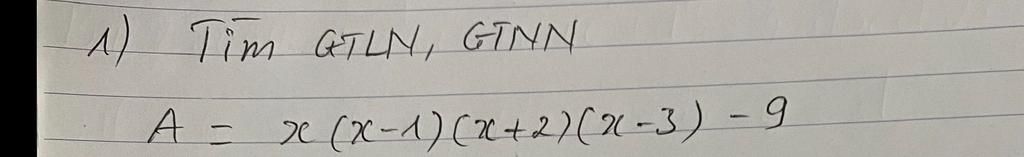 1) Tim GTLN, GTNN
A = x(x-1)(x+2)(x-3) - 9